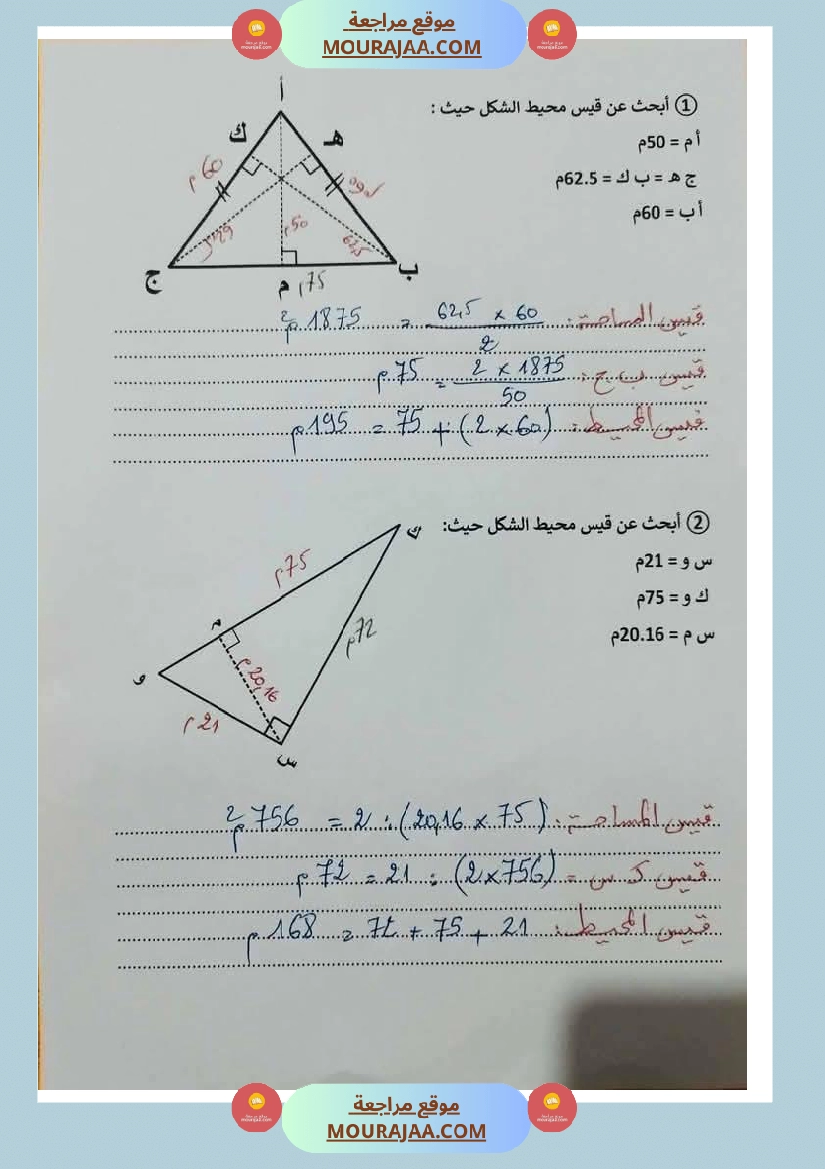 موقع مراجعة
MOURAJAA.COM
① أبحث عن قيس محيط الشكل حيث :
أ م = 50م
ج هـ = ب ك = 62.5م
أ ب = 60م
أ
ك
هـ
م 60
م 60
م 50
62,5
62,5
ج
م
ب
م 75
قيس المساحة : 60 × 62,5 / 2 = 1875 م²
قيس ب ج : 1875 × 2 / 50 = 75 م
قيس المحيط : (60 × 2) + 75 = 195 م
② أبحث عن قيس محيط الشكل حيث:
س و = 21م
ك و = 75م
س م = 20.16م
ك
م 75
م
م 72
م 20,16
و
م 21
س
قيس المساحة : (75 × 20,16) : 2 = 756 م²
قيس ك س = (756 × 2) : 21 = 72 م
قيس المحيط : 21 + 75 + 72 = 168 م
موقع مراجعة
MOURAJAA.COM